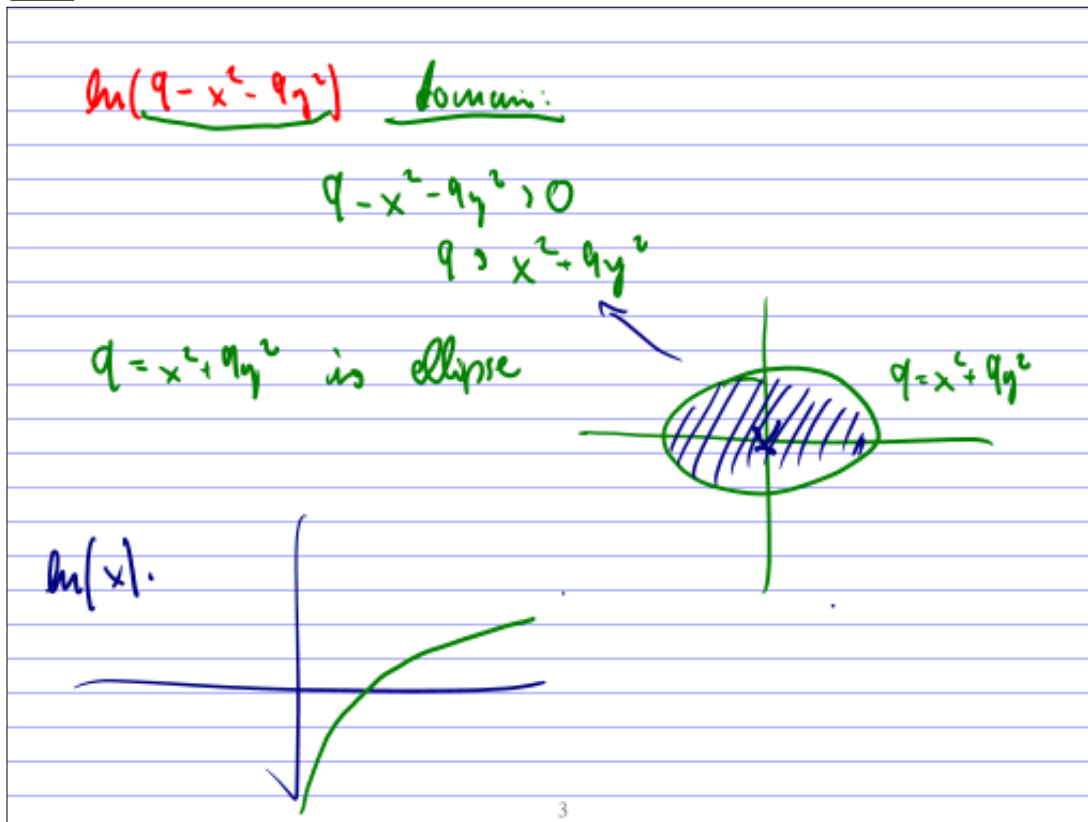 ln(9 - x² - 9y²) domain:
9 - x² - 9y² > 0
9 > x² + 9y²
9 = x² + 9y² is ellipse
9 = x² + 9y²
ln(x).
3